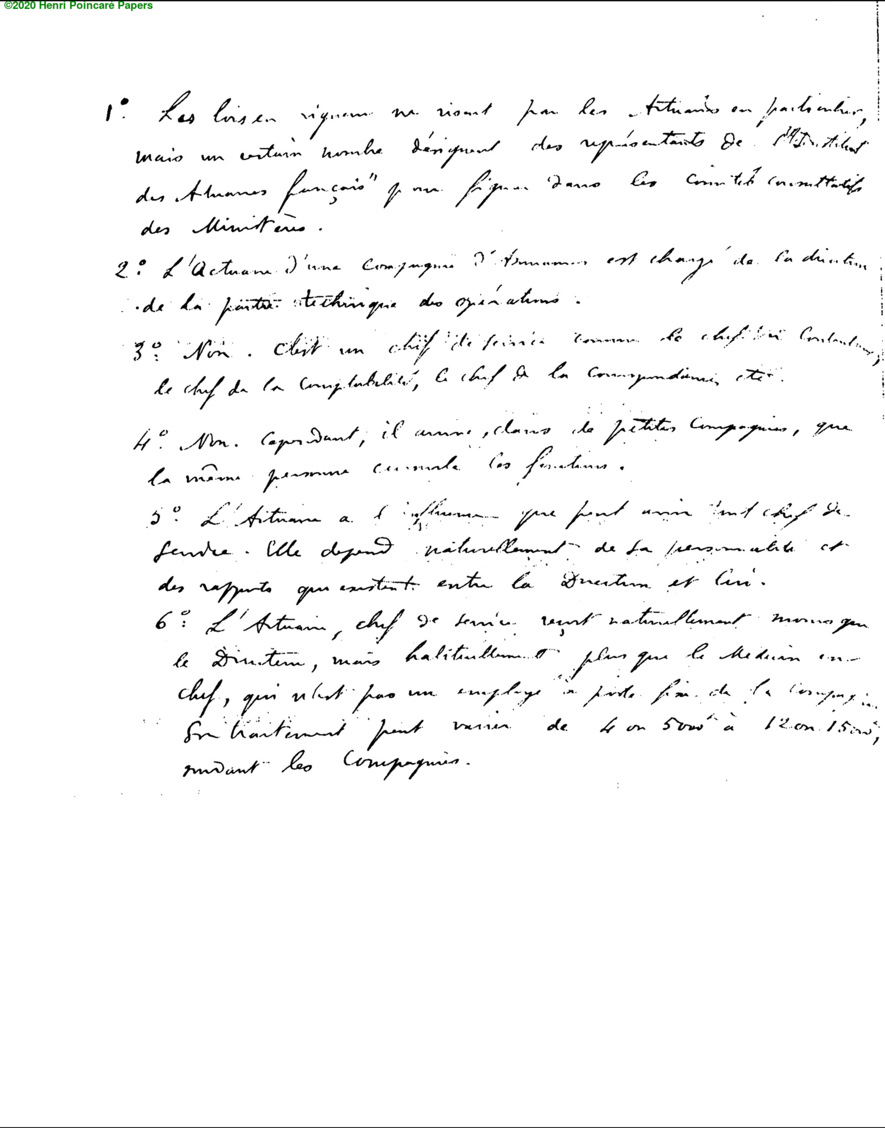 ©2020 Henri Poincaré Papers
1° Les lois en vigueur ne visent pas les Actuaires en particulier,
mais un certain nombre désignent des représentants de l'"Institut
des Actuaires français" pour figurer dans les Comités consultatifs
des Ministères.
2° L'Actuaire d'une Compagnie d'Assurances est chargé de la direction
de la partie technique des opérations.
3° Non. C'est un chef de service comme le chef du Contentieux,
le chef de la Comptabilité, le chef de la Correspondance, etc.
4° Non. Cependant, il arrive, dans de petites Compagnies, que
la même personne cumule les fonctions.
5° L'Actuaire a l'influence que peut avoir tout chef de
service. Elle dépend naturellement de sa personnalité et
des rapports qui existent entre la Direction et lui.
6° L'Actuaire, chef de service reçoit naturellement moins que
le Directeur, mais habituellement plus que le Médecin en
chef, qui n'est pas un employé à poste fixe de la Compagnie.
Son traitement peut varier de 4 ou 5000 à 12 ou 15000,
suivant les Compagnies.